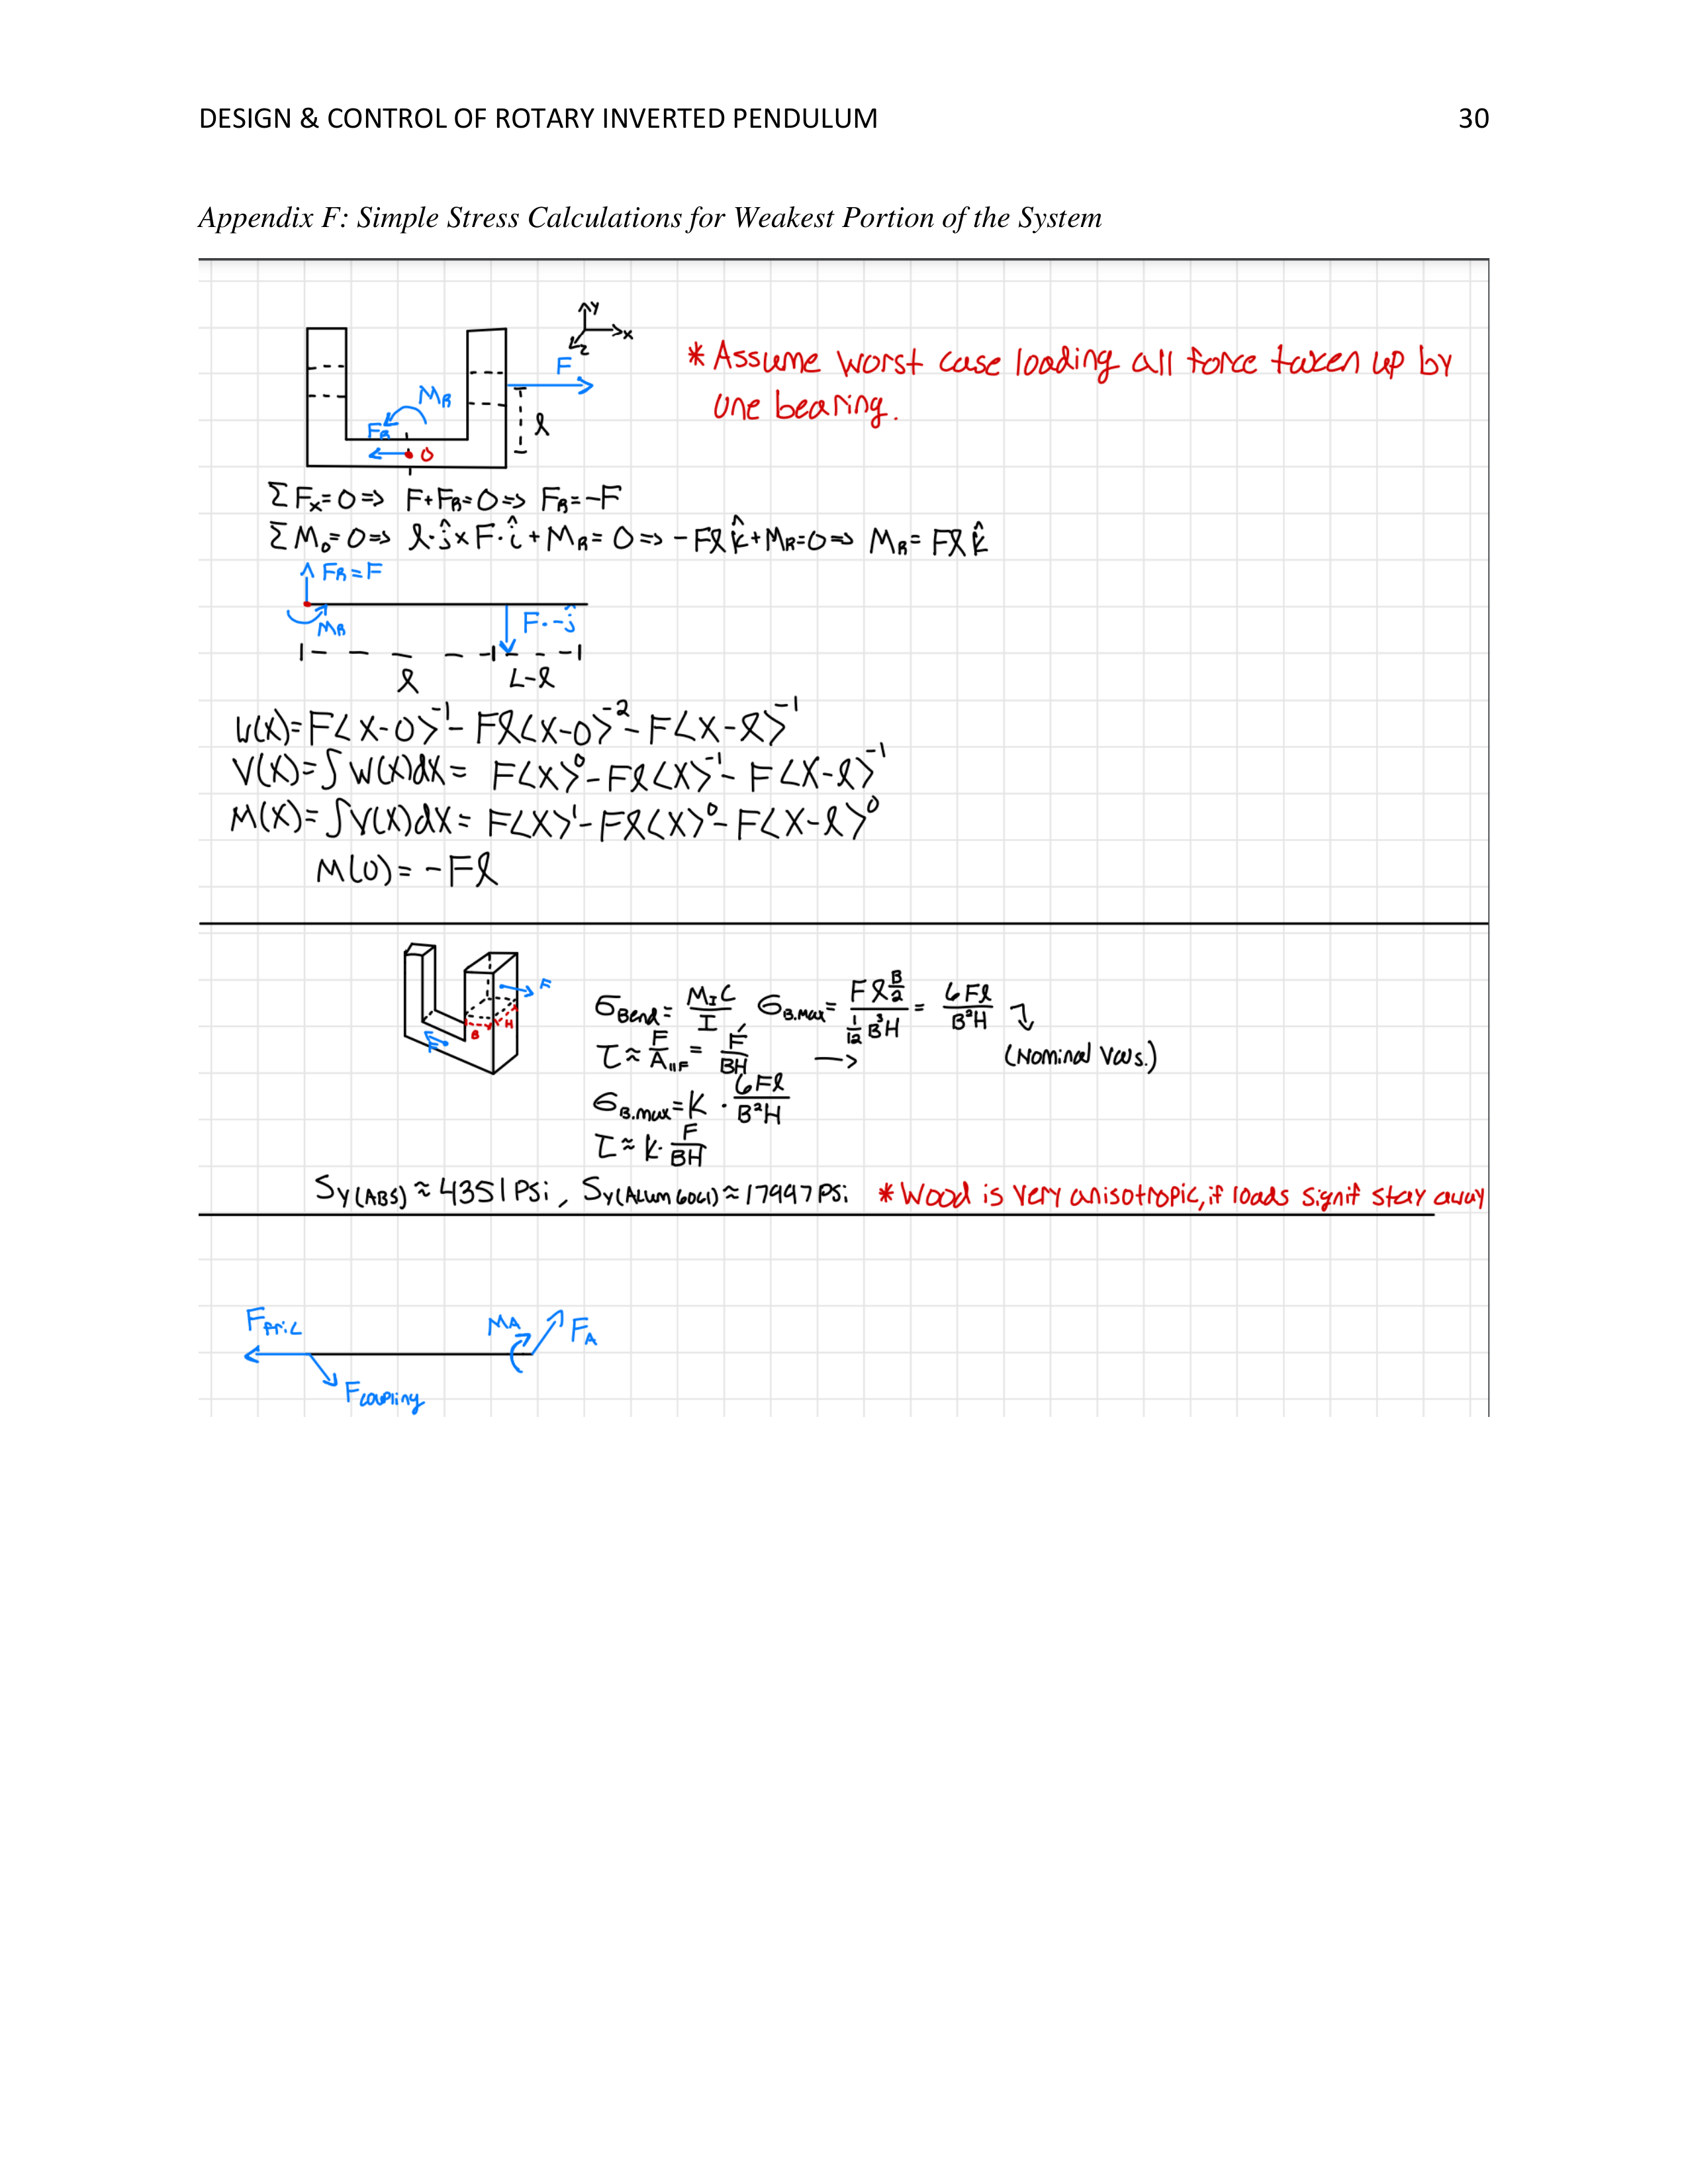 DESIGN & CONTROL OF ROTARY INVERTED PENDULUM 30
Appendix F: Simple Stress Calculations for Weakest Portion of the System
y
x
z
F
* Assume worst case loading all force taken up by
one bearing.
M_R
F_R
O
l
ΣF_x=0 => F+F_R=0 => F_R=-F
ΣM_o=0 => l·ĵ x F·î + M_R = 0 => -Fl k̂ + M_R=0 => M_R = Fl k̂
F_R = F
M_R
F·-ĵ
l
L-l
W(x)= F<x-0>^-1 - Fl<x-0>^-2 - F<x-l>^-1
V(x)= ∫W(x)dx = F<x>^0 - Fl<x>^-1 - F<x-l>^-1
M(x)= ∫V(x)dx = F<x>^1 - Fl<x>^0 - F<x-l>^0
M(0) = -Fl
F
B
H
F
σ_Bend = M_I C / I, σ_B.max = F l B/2 / 1/12 B^3 H = 6Fl / B²H
τ ≈ F / A_||F = F / BH → (Nominal Vals.)
σ_B.max = K · 6Fl / B²H
τ ≈ k · F / BH
S_y(ABS) ≈ 4351 Psi, S_y(Alum 6061) ≈ 17997 Psi * Wood is very anisotropic, if loads signif stay away
F_fric
M_A
F_A
F_coupling